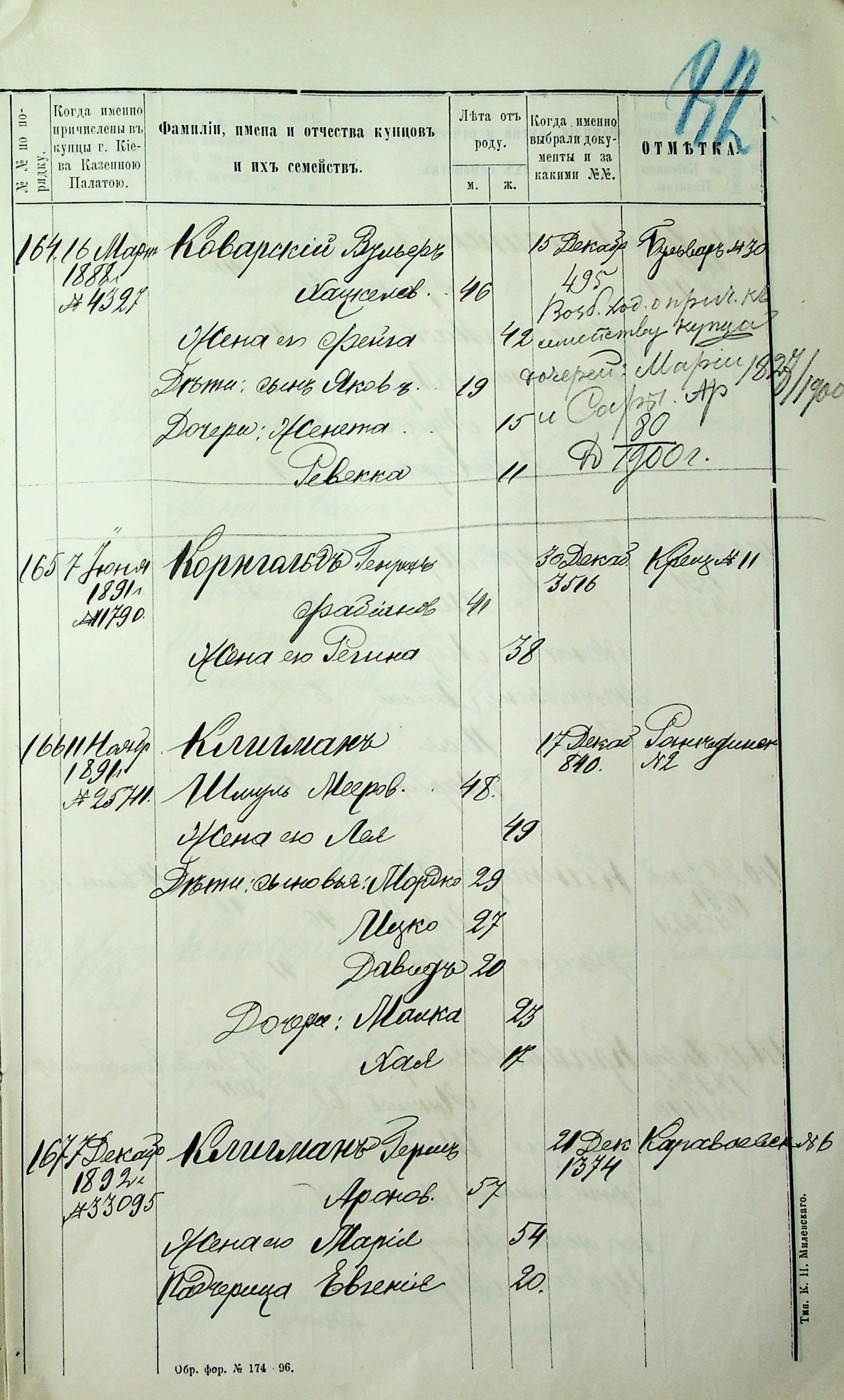 32
№№ по по-
рядку.
Когда именно
причислены въ
купцы г. Кіе-
ва Казенною
Палатою.
Фамиліи, имена и отчества купцовъ
и ихъ семействъ.
Лѣта отъ
роду.
м. ж.
Когда именно
выбрали доку-
менты и за
какими №№.
ОТМѢТКА.
164. 16 Март Коварскій Вульфъ 15 Декабр Бульваръ № 30
1888 г. Хацкелев. 46 495
№ 4327 Возб. ход. о прич. къ
Жена его Фейга 42 семейству купца
Дѣти: сынъ Яковъ. 19 дочерей: Маріи
Дочери: Женета 15 и Сарры. 80
Ревекка 11 Д 1900 г.
165 7 Іюня Корнгольдъ Генрихъ 30 Декаб. Крещ № 11
1891 г. Фабіанов 41 3516
№ 11790.
Жена его Регина 38
166 11 Ноябр Клигманъ 17 Декаб
1891 г. 840. №2
№ 25711. Шмуль Мееров. 48.
Жена его Лея 49
Дѣти: сыновья: Мордко 29
Ицко 27
Давидъ 20
Дочери: Малка 23
Хая 17
167 7 Декабр Клигманъ Гершъ 21 Дек Караваевск № 6
1892 г. Аронов. 57 1374
№ 33095
Жена его Марія 54
Падчерица Евгенія 20.
Обр. фор. № 174 - 96.
Тип. К. Н. Милевскаго.